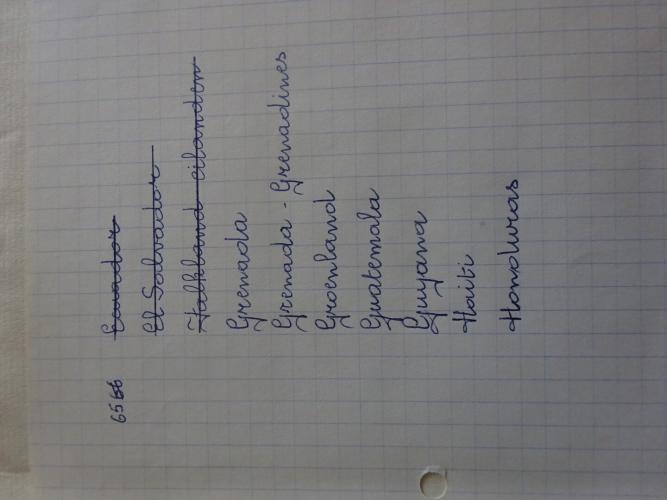 65
Ecuador
El Salvador
Falkland eilanden
Grenada
Grenada - Grenadines
Groenland
Guatemala
Guyana
Haiti
Honduras